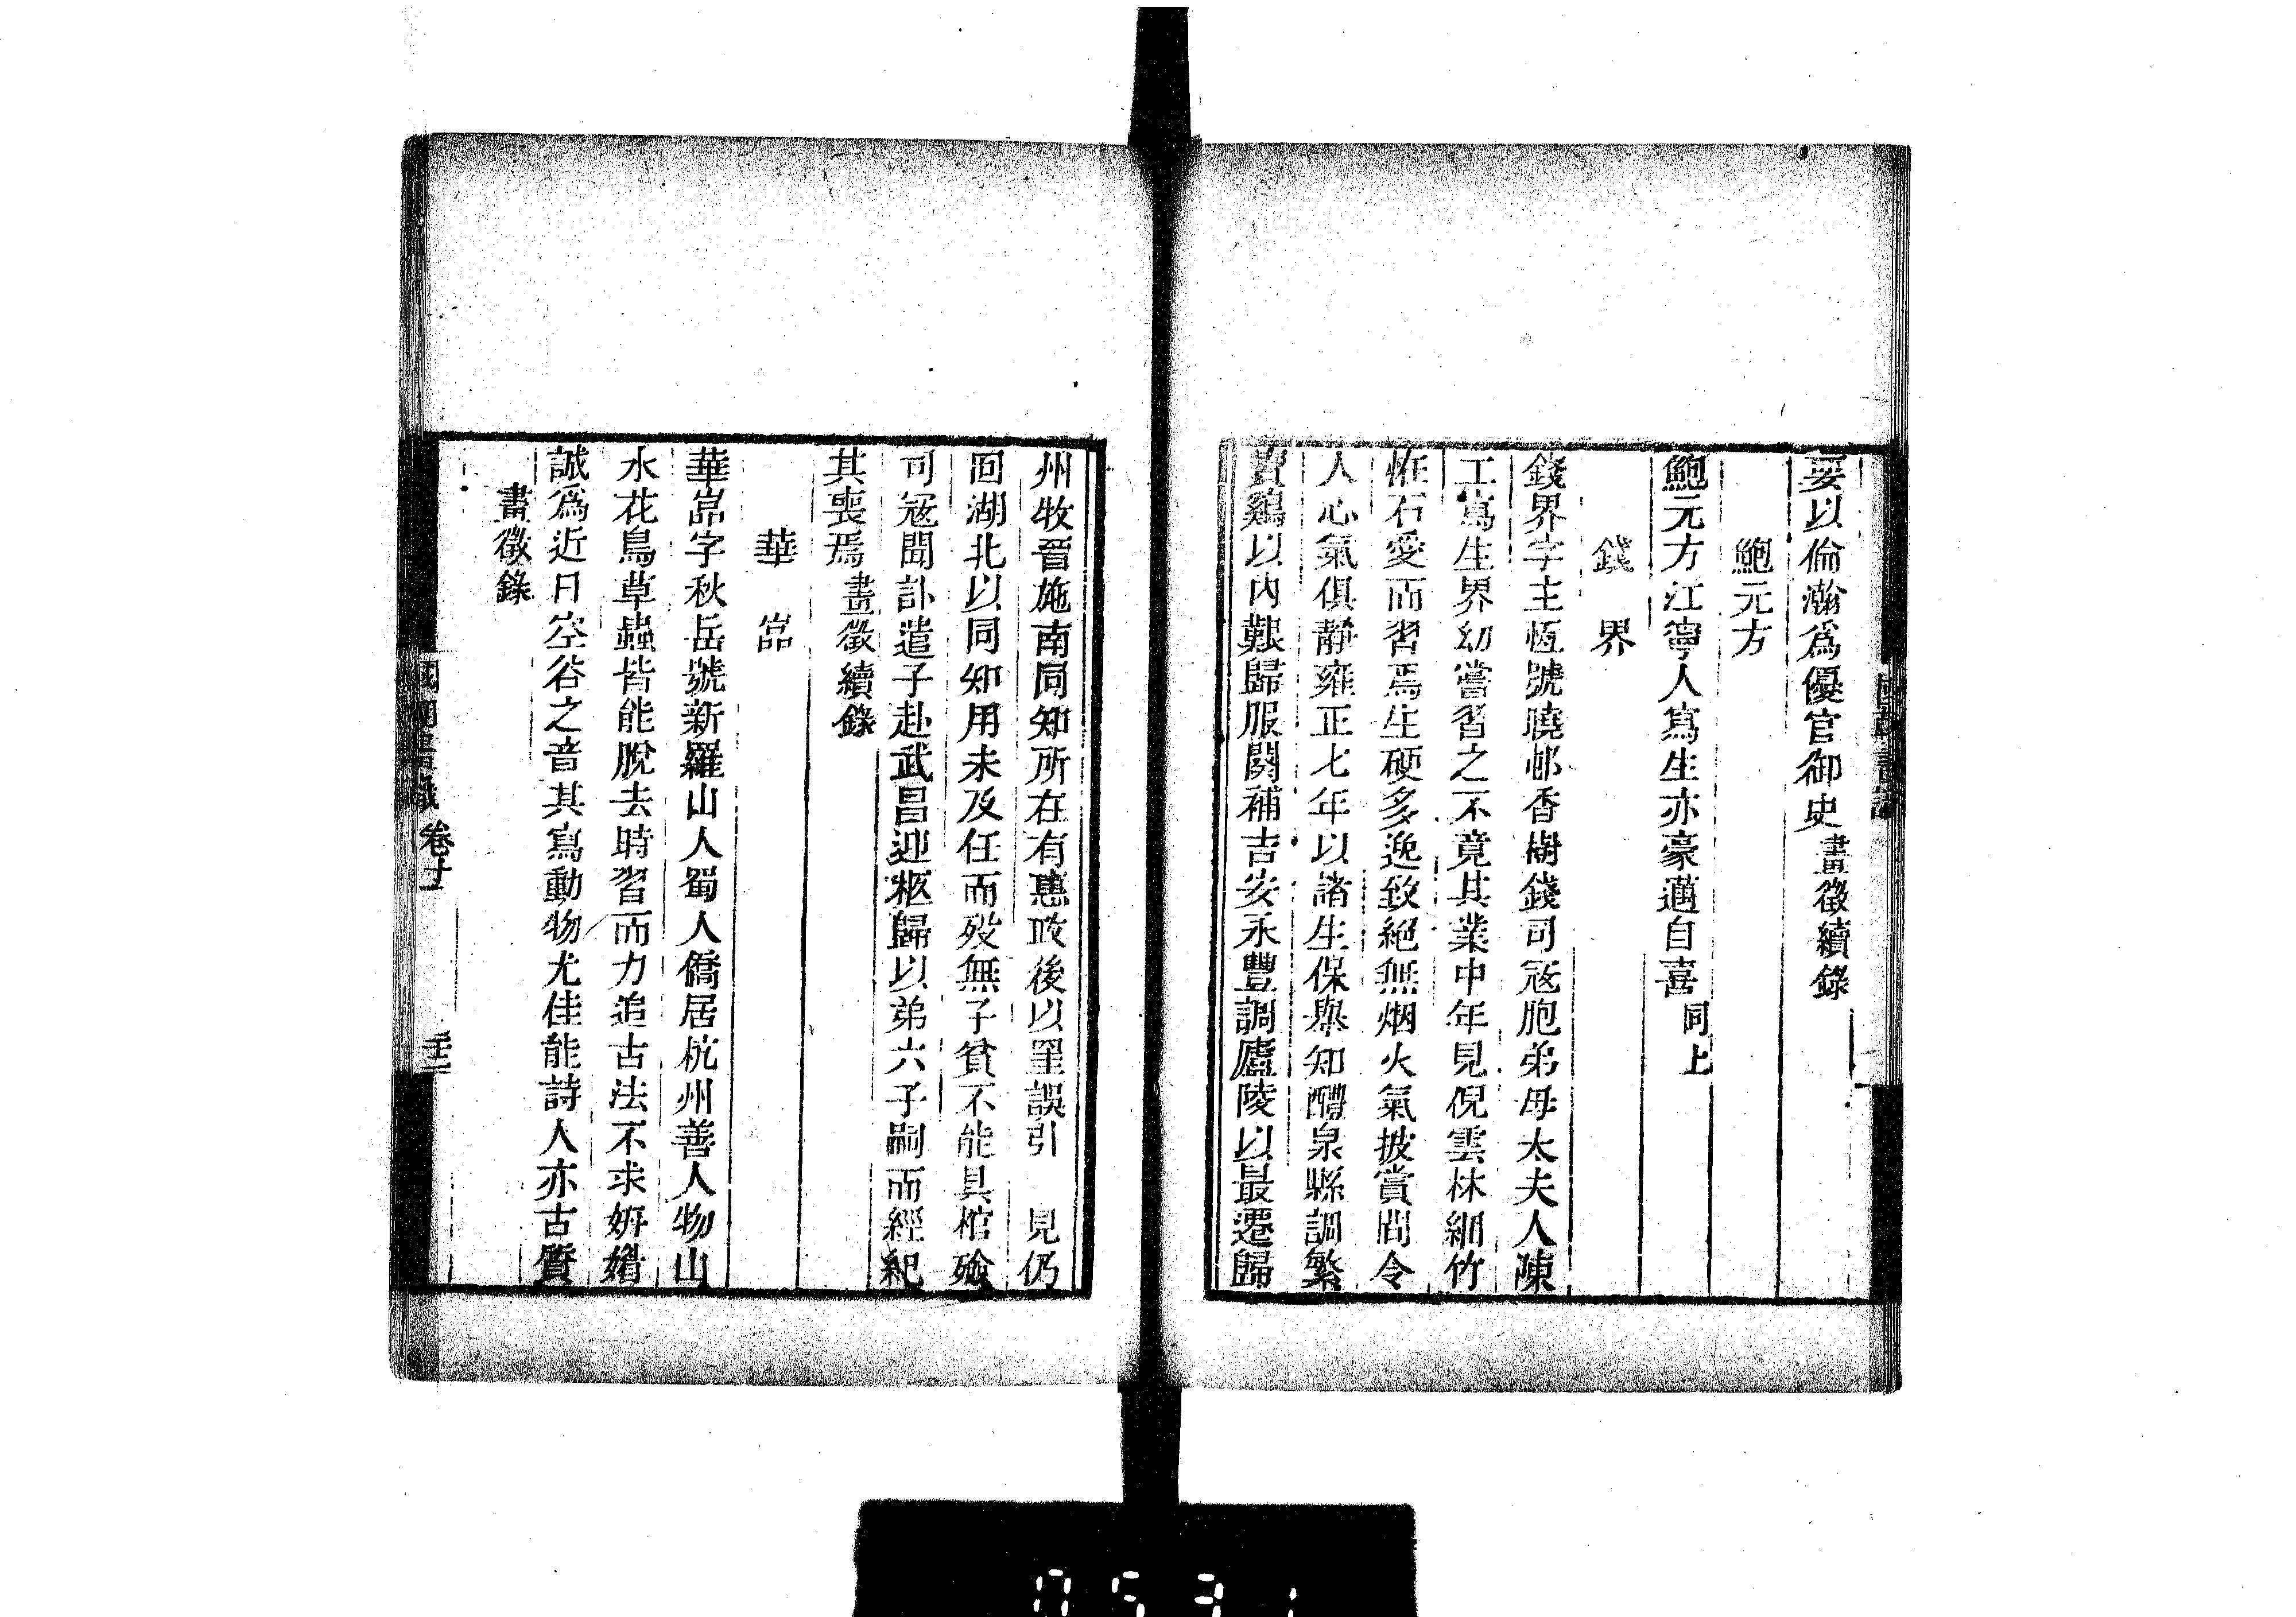 妥以倫瀚爲優官御史畫徵續錄
鮑元方
鮑元方江寧人寫生亦豪邁自喜同上
錢界
錢界字主恆號曉邨香樹錢司宼胞弟母太夫人陳
工寫生界幼嘗習之不竟其業中年見倪雲林細竹
恠石愛而習焉生硬多逸致絕無烟火氣披賞間令
人心氣俱靜雍正七年以諸生保舉知醴泉縣調繁
寶鷄以內艱歸服闋補吉安永豐調廬陵以最遷歸
州牧晉施南同知所在有惠政後以罣誤引 見仍
囘湖北以同知用未及任而歿無子貧不能具棺殮
司宼聞訃遣子赴武昌迎柩歸以弟六子嗣而經紀
其喪焉畫徵續錄
華嵒
華嵒字秋岳號新羅山人蜀人僑居杭州善人物山
水花鳥草蟲皆能脫去時習而力追古法不求妍媚
誠爲近日空谷之音其寫動物尤佳能詩人亦古質
畫徵錄
卷十
0531